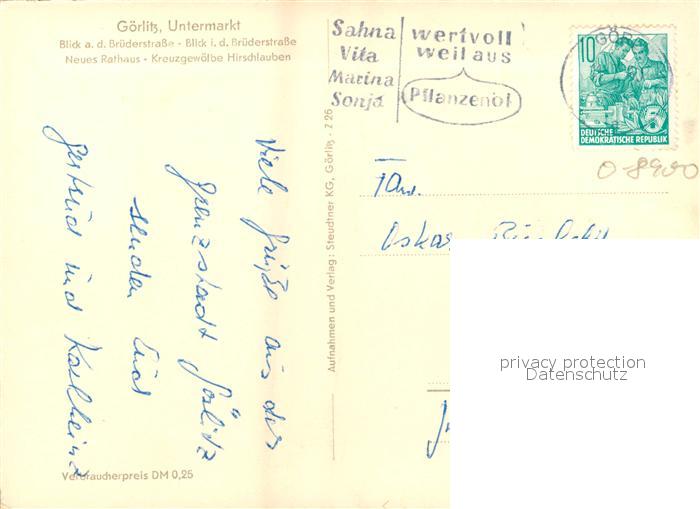 Görlitz, Untermarkt
Blick a. d. Brüderstraße - Blick i. d. Brüderstraße
Neues Rathaus - Kreuzgewölbe Hirschlauben
Sahna
Vita
Marina
Sonja
wertvoll
weil aus
Pflanzenöl
GÖR
10
5
DEUTSCHE
DEMOKRATISCHE REPUBLIK
O 8900
Fam.
Oskar
Viele Grüße aus der
Grenzstadt Görlitz
senden Euch
Gertrud und Karlheinz
Aufnahmen und Verlag: Steudtner KG, Görlitz - Z 26
privacy protection
Datenschutz
Verbraucherpreis DM 0,25